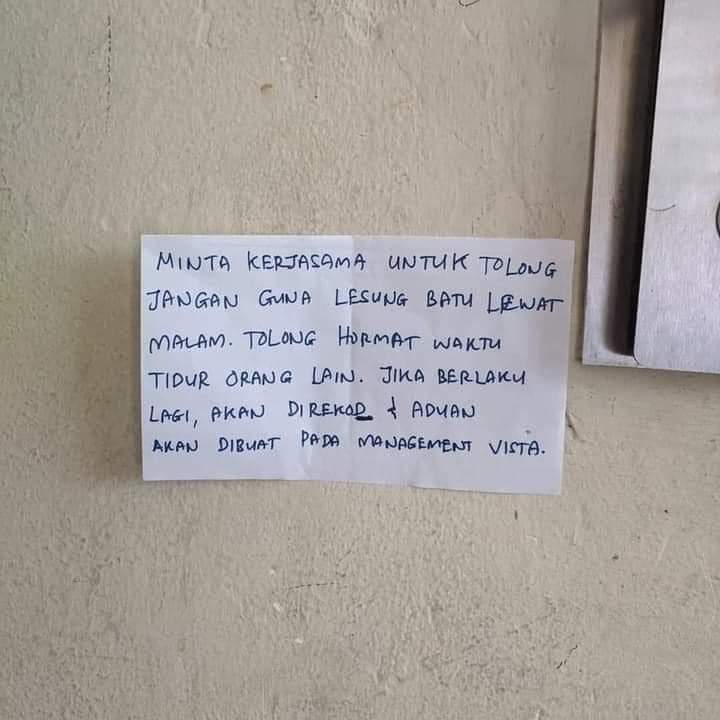 MINTA KERJASAMA UNTUK TOLONG
JANGAN GUNA LESUNG BATU LEWAT
MALAM. TOLONG HORMAT WAKTU
TIDUR ORANG LAIN. JIKA BERLAKU
LAGI, AKAN DIREKOD & ADUAN
AKAN DIBUAT PADA MANAGEMENT VISTA.